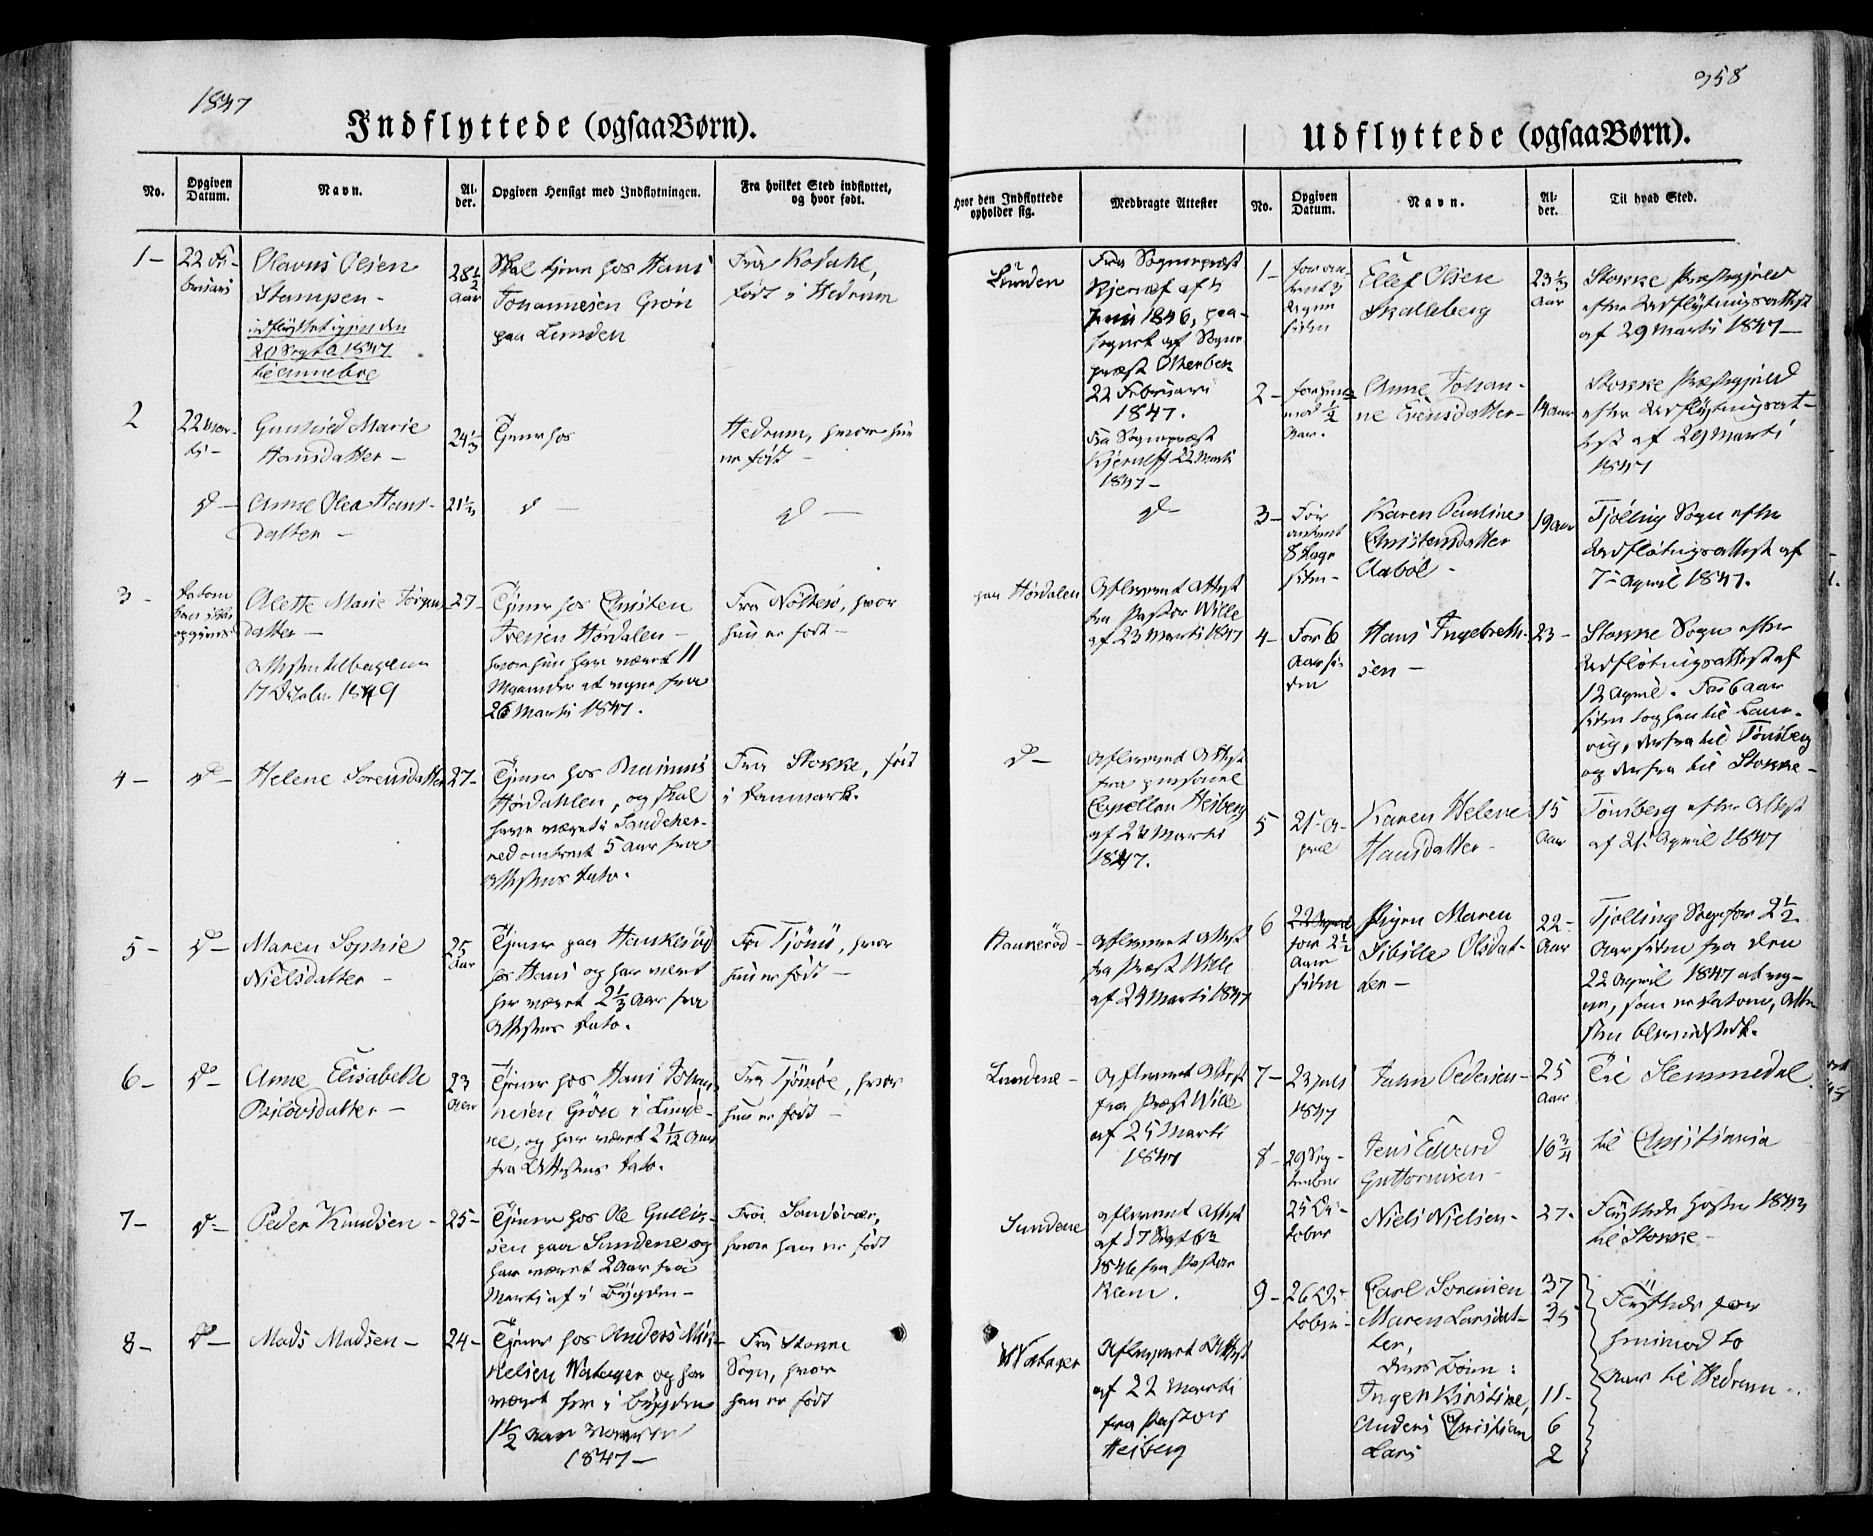 1847
Indflyttede (ogsaa Børn).
No.
Opgiven Datum.
Navn.
Alder.
Opgiven Hensigt med Indflytningen.
Fra hvilket Sted indflyttet, og hvor født.
Hvor den Indflyttede opholder sig.
Medbragte Attester
1-
22 Fe-
bruari
Olavus Olsen
Stampen-
20 Sept 1847
28 1/2
Aar
Skal tjene hos Hans
Johannesen Grön
paa Lunden
Fra Kodahl,
födt i Hedrum
Lunden
Fra Sogneprest
Kjerulf af
Juni 1846, paa-
tegnet af Sogne
præst
22 Februari
1847.
2
22 Mar-
ti-
Gunhild Marie
Hansdatter-
24 1/3
Tjener hos
Hedrum, hvor hun
er födt-
Fra Sogneprest
Kjerulf 22 Marti
1847-
d-
Anne Olea Hans-
datter-
21 1/3
d-
d-
d-
3-
Datum
kan ikke
opgives
Alette Marie Jörgens
datter-
Attesten tilbagelev
17 October 1849
27-
Tjener hos Christen
Iversen Hørdalen-
hvor hun har været 11
Maaneder at regne fra
26 Marti 1847.
Fra Nötterö, hvor
hun er født-
paa Hørdalen
Afleveret Attest
fra Pastor Wille
af 23 Marti 1847
4-
d-
Helene Sørensdatter
27-
Tjener hos Rasmus
Hørdahlen, og skal
have været i Sandeher-
red omtrent 5 Aar fra
Attestens Dato.
Fra Stokke, född
i Danmark.
d-
Afleveret Attest
fra personel
Capellan Heiberg
af 24 Marti
1847.
5-
d-
Maren Sophie
Nielsdatter-
25
Aar
Tjener paa Haukeröd
hos Hans og har været
her været 2 1/3 Aar fra
Attestens Dato.
Fra Tjömö, hvor
hun er født-
Haukeröd-
Afleveret Attest
fra Præst Wille
af 24 Marti 1847
6-
d-
Anne Elisabeth
23
Aar
Tjener hos Hans Johan-
nesen Gröen i Lunde-
ne, og har været 2 1/12 Aar
fra Attestens Dato.
Fra Tjömöe, hvor
hun er født-
Lundene-
Afleveret Attest
fra Præst Wille
af 25 Marti
1847
7-
d-
Peder Knudsen-
25-
Tjener hos Ole Gullik-
sen paa Sundene og
har været 2 Aar fra
Marti af i Bygden-
Fra Sandsvær,
hvor han er født
Sundene
Afleveret Attest
af 17 Septbr
1846 fra Pastor
8-
d-
Mads Madsen-
24-
Tjener hos Anders Mik-
kelsen Natager og har
været her i Bygden
1 1/2 Aar
1847-
Fra Stokke
Sogn, hvor
han er født
Natager
Afleveret Attest
af 22 Marti
fra Pastor
Heiberg
358
Udflyttede (ogsaa Børn).
No.
Opgiven Datum.
Navn.
Alder.
Til hvad Sted.
1-
for om-
trent 3
Dage
siden
Ellef Olsen
Skalleberg
23 1/3
Aar
Stokke Præstegjeld
efter Udflytningsattest
af 29 Marti 1847-
2-
for hen-
mod 1/2
Aar.
Anne Johan-
ne Evensdatter-
14 Aar
Stokke Præstegjeld
efter Udflytningsat-
test af 29 Marti
1847
3-
For
omtrent
8 Dage
siden-
Karen Pauline
Christensdatter
Aaböl-
19 Aar
Tjölling Sogn efter
Udflötningsattest af
7 April 1847.
4-
For 6
Aar si-
den
Hans Ingebreth-
sen-
23-
Stokke Sogn efter
Udflötningsattest af
12 April. For 6 Aar
siden tog han til Laur-
vig, derfra til Tönsberg
og derfra til Stokke-
5
21 A-
pril
Karen Helene
Hansdatter-
15
Aar
Tönsberg efter Attest
af 21 April 1847
6
22 April
for 2 1/2
Aar
siden
Maren
Sibille Olsdat-
ter-
22-
Aar
Tjölling Sogn for 2 1/2
Aar siden fra den
22 April 1847 at reg-
ne, som er Datum, Atte-
sten blev udstedt.
7-
23 Juli
1847
Jahn Pedersen-
25
Aar
Til Slemmedal.
8-
29 Sep-
tember
Jens Edvard
Guttormsen-
16 3/4
til Christiania
25 Oc-
tober
Niels Nielsen-
27.
Flyttede Høsten 1843
til Stokke-
9-
26 Oc-
tober-
Carl Sørensen
Maren Larsdat-
ter,
deres Børn:
Inger Kirstine,
Anders Christian
Lars
37
35
11-
6
2
Flyttede for
henimod to
Aar til Hedrum-